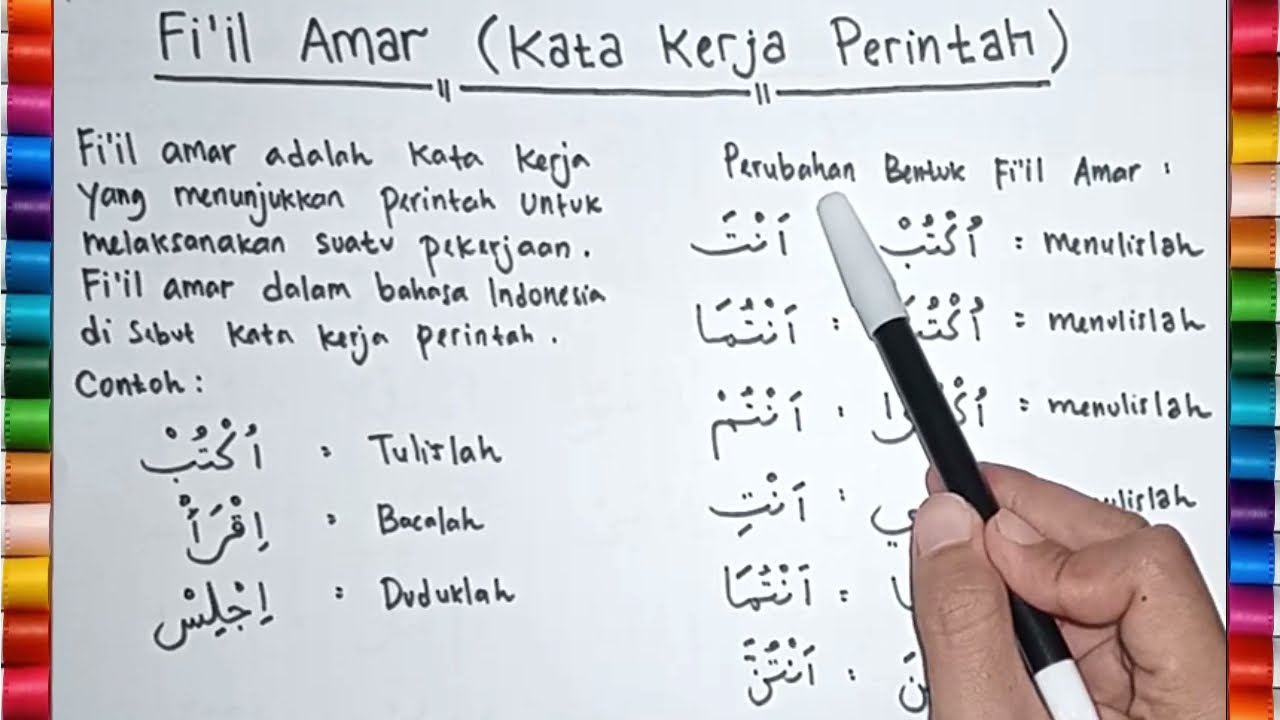 Fi'il Amar (Kata Kerja Perintah)
Fi'il amar adalah kata kerja
yang menunjukkan perintah untuk
melaksanakan suatu pekerjaan.
Fi'il amar dalam bahasa Indonesia
di sebut kata kerja perintah.
Contoh :
اُكْتُبْ : Tulislah
اِقْرَأْ : Bacalah
اِجْلِيْسْ : Duduklah
Perubahan Bentuk Fi'il Amar :
اَنْتَ اُكْتُبْ : menulislah
اَنْتُمَا : : menulislah
اَنْتُمْ : : menulislah
اَنْتِ :
اَنْتُمَا :
اَنْتُنَّ :